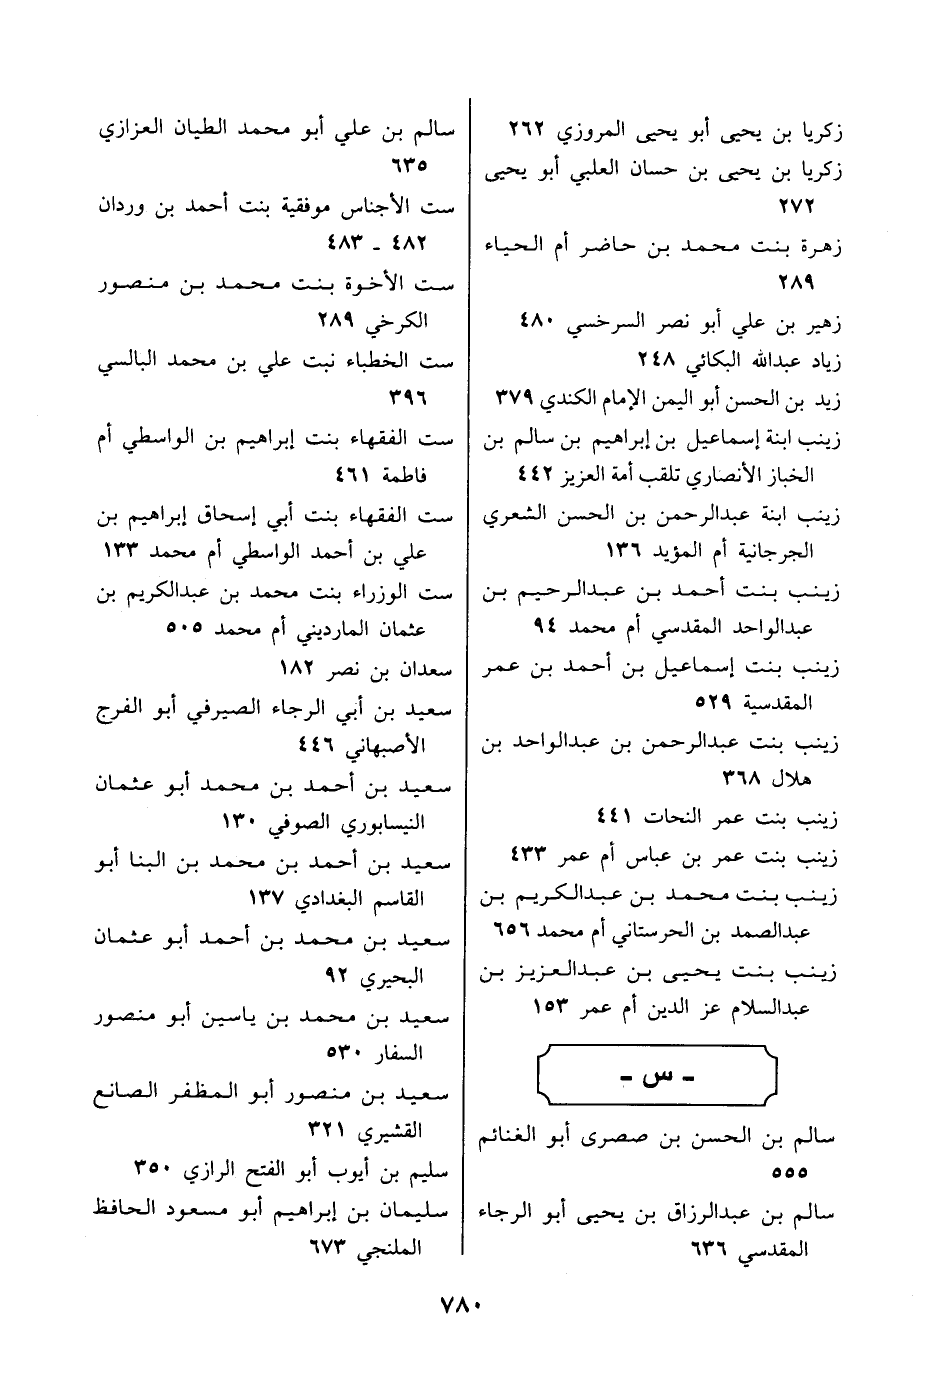 زكريا بن يحيى أبو يحيى المروزي ٢٦٢
زكريا بن يحيى بن حسان العلبي أبو يحيى
٢٧٢
زهرة بنت محمد بن حاضر أم الحياء
٢٨٩
زهير بن علي أبو نصر السرخسي ٤٨٠
زياد عبدالله البكائي ٢٤٨
زيد بن الحسن أبو اليمن الإمام الكندي ٣٧٩
زينب ابنة إسماعيل بن إبراهيم بن سالم بن
الخباز الأنصاري تلقب أمة العزيز ٤٤٢
زينب ابنة عبدالرحمن بن الحسن الشعري
الجرجانية أم المؤيد ١٣٦
زينب بنت أحمد بن عبدالرحيم بن
عبدالواحد المقدسي أم محمد ٩٤
زينب بنت إسماعيل بن أحمد بن عمر
المقدسية ٥٢٩
زينب بنت عبدالرحمن بن عبدالواحد بن
هلال ٣٦٨
زينب بنت عمر النحات ٤٤١
زينب بنت عمر بن عباس أم عمر ٤٣٣
زينب بنت محمد بن عبدالكريم بن
عبدالصمد بن الحرستاني أم محمد ٦٥٦
زينب بنت يحيى بن عبدالعزيز بن
عبدالسلام عز الدين أم عمر ١٥٣
- س -
سالم بن الحسن بن صصرى أبو الغنائم
٥٥٥
سالم بن عبدالرزاق بن يحيى أبو الرجاء
المقدسي ٦٣٦
سالم بن علي أبو محمد الطيان العزازي
٦٣٥
ست الأجناس موفقية بنت أحمد بن وردان
٤٨٢ - ٤٨٣
ست الأخوة بنت محمد بن منصور
الكرخي ٢٨٩
ست الخطباء نبت علي بن محمد البالسي
٣٩٦
ست الفقهاء بنت إبراهيم بن الواسطي أم
فاطمة ٤٦١
ست الفقهاء بنت أبي إسحاق إبراهيم بن
علي بن أحمد الواسطي أم محمد ١٣٣
ست الوزراء بنت محمد بن عبدالكريم بن
عثمان المارديني أم محمد ٥٠٥
سعدان بن نصر ١٨٢
سعيد بن أبي الرجاء الصيرفي أبو الفرج
الأصبهاني ٤٤٦
سعيد بن أحمد بن محمد أبو عثمان
النيسابوري الصوفي ١٣٠
سعيد بن أحمد بن محمد بن البنا أبو
القاسم البغدادي ١٣٧
سعيد بن محمد بن أحمد أبو عثمان
البحيري ٩٢
سعيد بن محمد بن ياسين أبو منصور
السفار ٥٣٠
سعيد بن منصور أبو المظفر الصانع
القشيري ٣٢١
سليم بن أيوب أبو الفتح الرازي ٣٥٠
سليمان بن إبراهيم أبو مسعود الحافظ
الملنجي ٦٧٣
٧٨٠